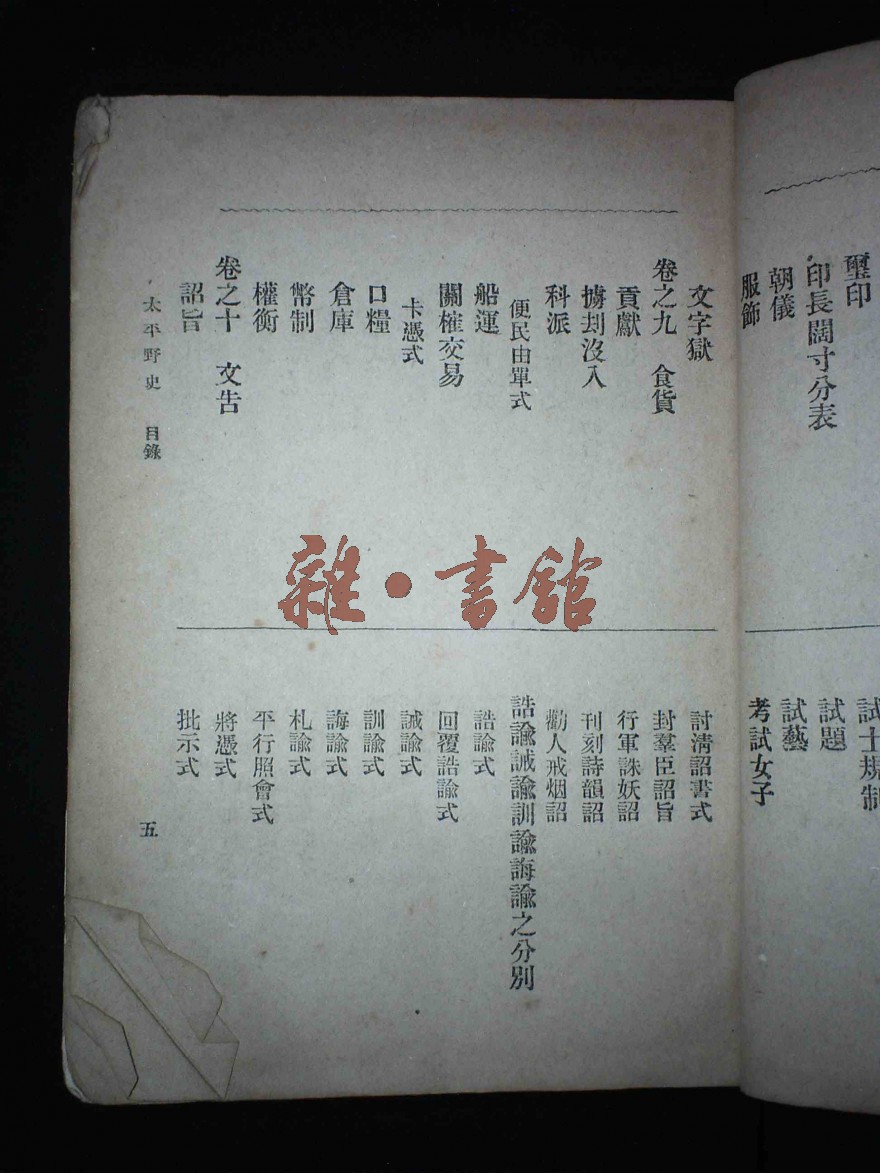 璽印
印長闊寸分表
朝儀
服飾
試士規制
試題
試藝
考試女子
文字獄
卷之九　食貨
貢獻
擄刦沒入
科派
便民由單式
船運
關榷交易
卡憑式
口糧
倉庫
幣制
權衡
卷之十　文告
詔旨
討清詔書式
封羣臣詔旨
行軍誅妖詔
刊刻詩韻詔
勸人戒烟詔
誥諭誡諭訓諭誨諭之分別
誥諭式
回覆誥諭式
誡諭式
訓諭式
誨諭式
札諭式
平行照會式
將憑式
批示式
太平野史　目錄
五
雜·書館